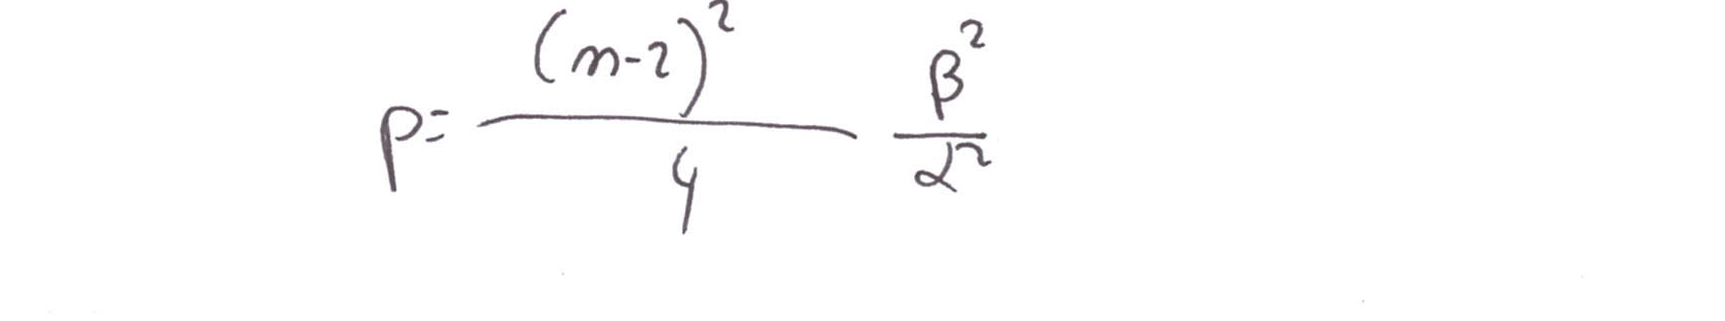 p = \frac{(n-2)^2}{4} \frac{\beta^2}{\alpha^2}